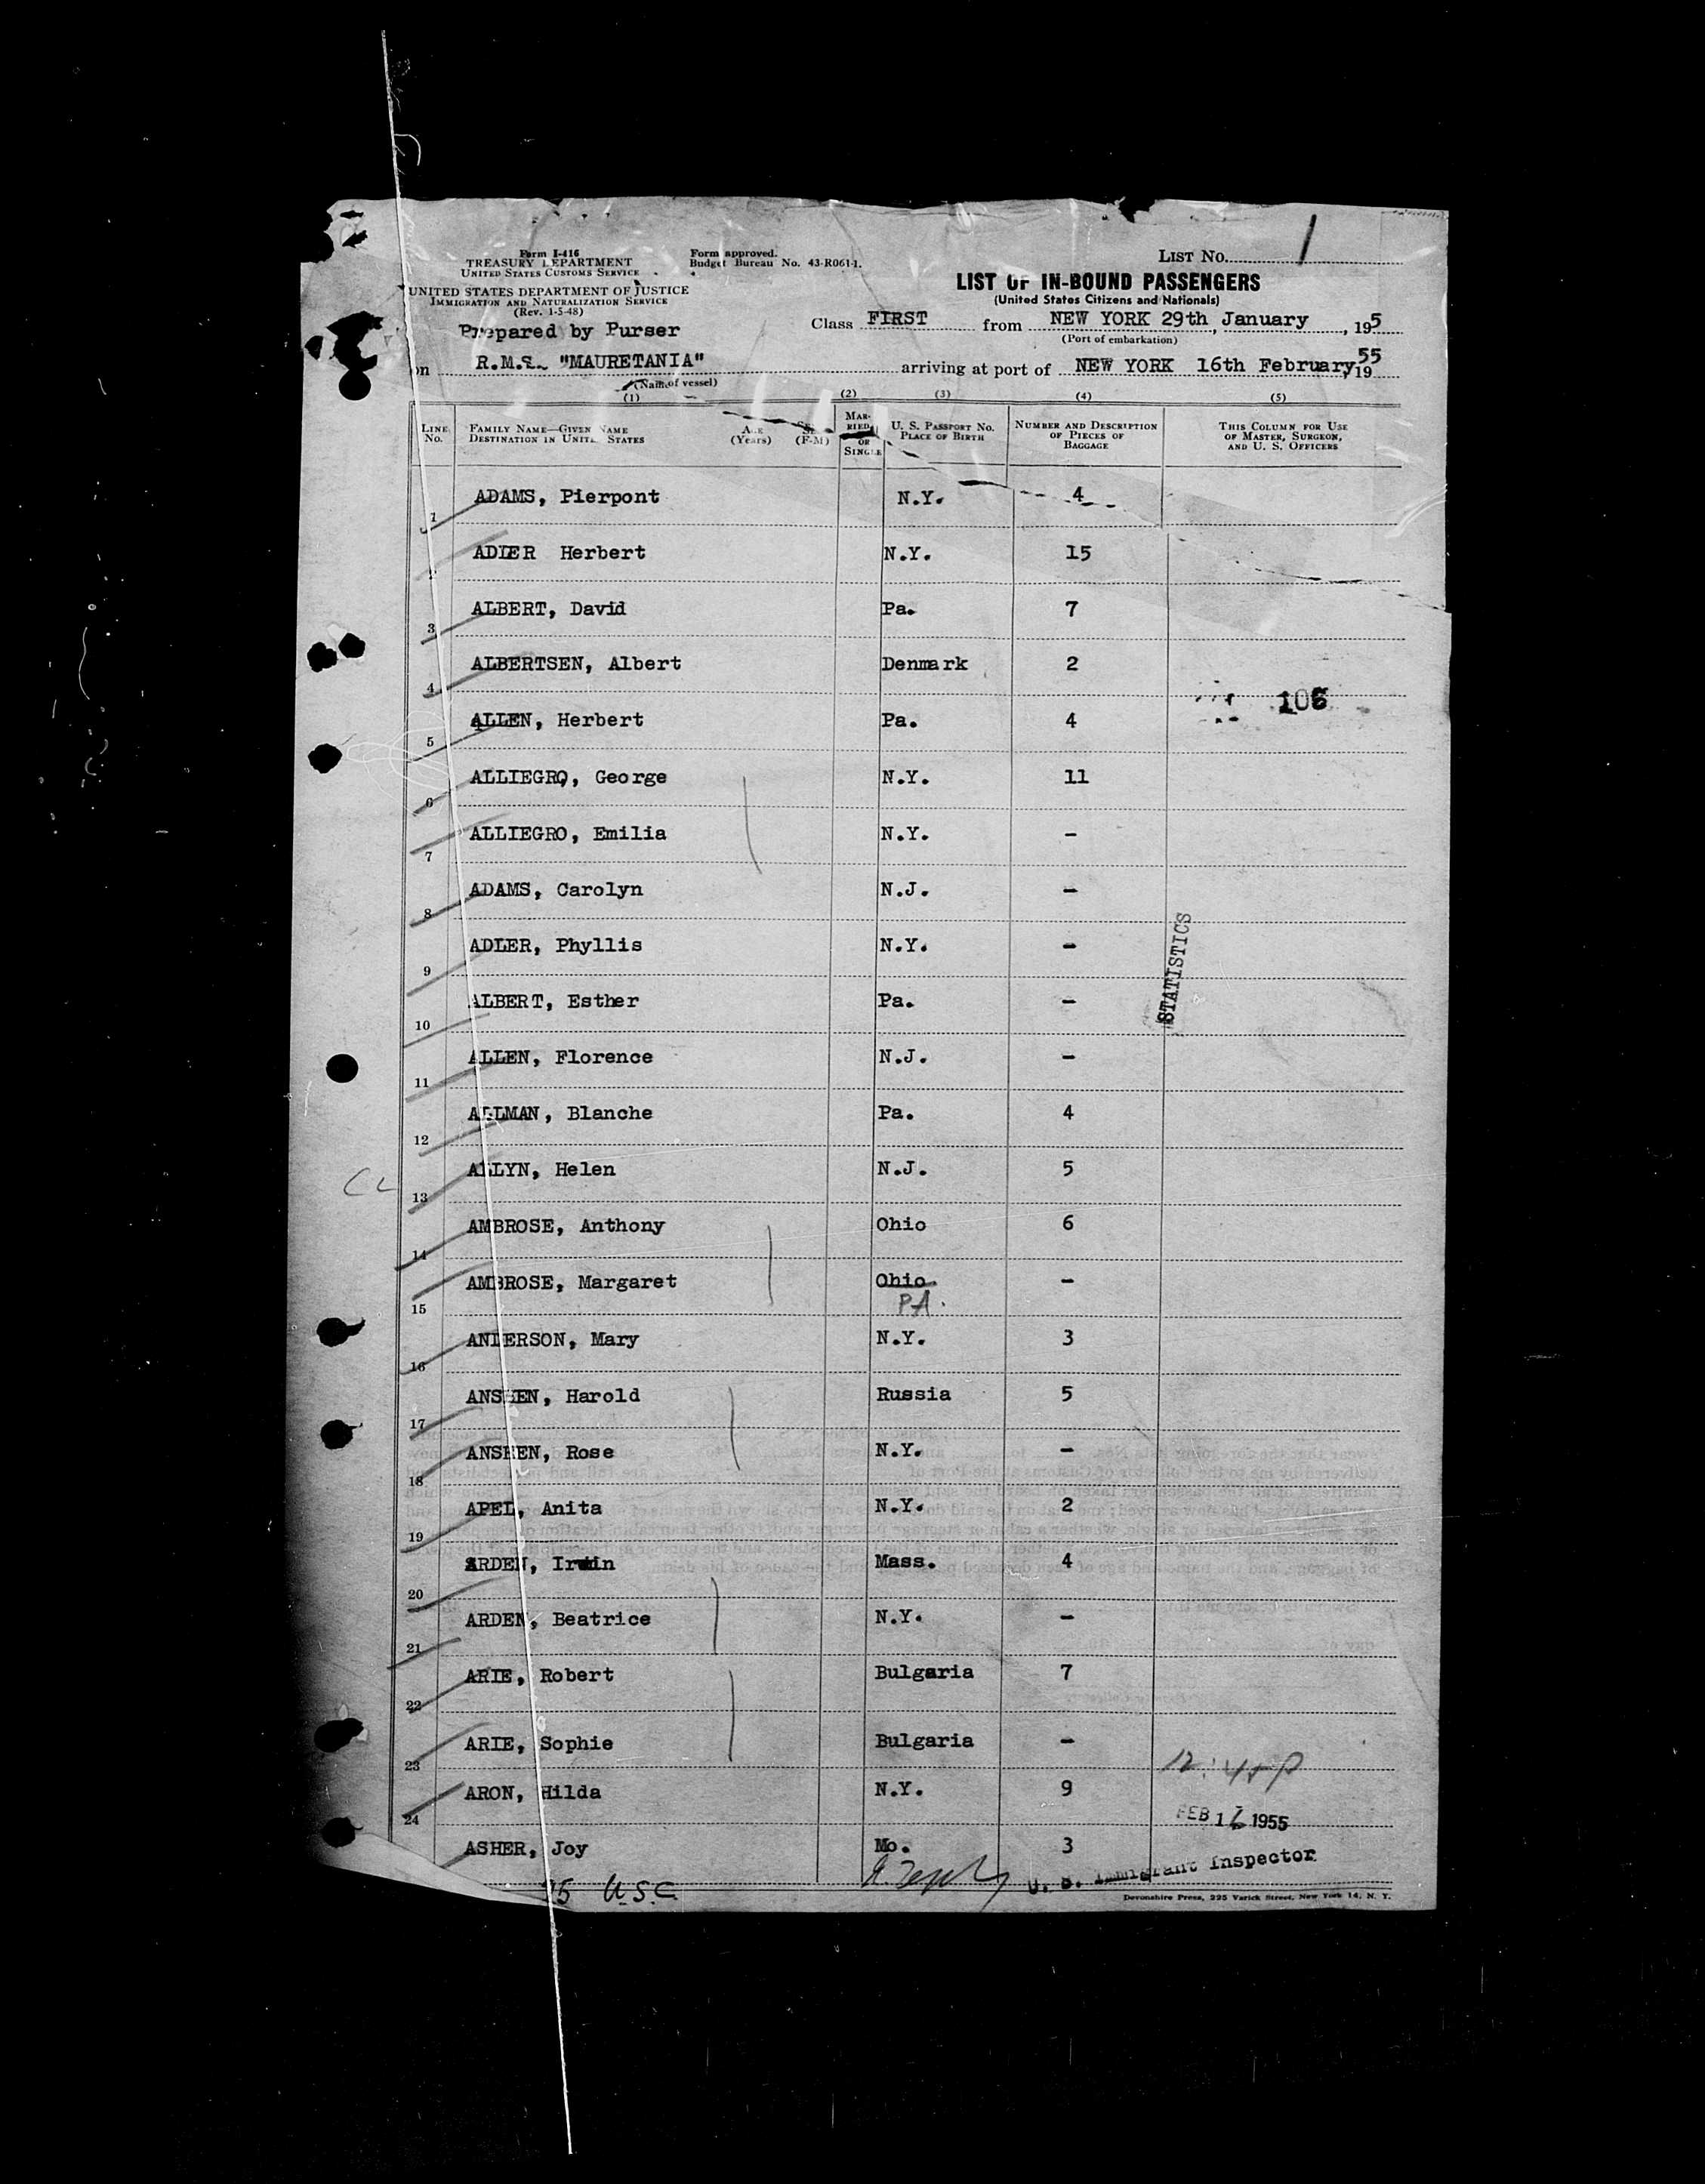 Form I-416
TREASURY DEPARTMENT
UNITED STATES CUSTOMS SERVICE
UNITED STATES DEPARTMENT OF JUSTICE
IMMIGRATION AND NATURALIZATION SERVICE
(Rev. 1-5-48)
Form approved.
Budget Bureau No. 43-R061-1.
LIST NO. 1
LIST OF IN-BOUND PASSENGERS
(United States Citizens and Nationals)
Prepared by Purser
Class FIRST from NEW YORK 29th January, 195
(Port of embarkation)
on R.M.S. "MAURETANIA" arriving at port of NEW YORK 16th February, 1955
(Name of vessel)
(1) (2) (3) (4) (5)
LINE NO.
FAMILY NAME—GIVEN NAME
DESTINATION IN UNITED STATES
AGE (Years)
SEX (F-M)
MARRIED OR SINGLE
U. S. PASSPORT NO.
PLACE OF BIRTH
NUMBER AND DESCRIPTION OF PIECES OF BAGGAGE
THIS COLUMN FOR USE OF MASTER, SURGEON, AND U. S. OFFICERS
1 ADAMS, Pierpont N.Y. 4
2 ADIER Herbert N.Y. 15
3 ALBERT, David Pa. 7
4 ALBERTSEN, Albert Denmark 2
106
5 ALLEN, Herbert Pa. 4
6 ALLIEGRO, George N.Y. 11
7 ALLIEGRO, Emilia N.Y. -
8 ADAMS, Carolyn N.J. -
STATISTICS
9 ADLER, Phyllis N.Y. -
10 ALBERT, Esther Pa. -
11 ALLEN, Florence N.J. -
12 ALLMAN, Blanche Pa. 4
13 ALLYN, Helen N.J. 5
14 AMBROSE, Anthony Ohio 6
15 AMBROSE, Margaret Ohio -
PA.
16 ANDERSON, Mary N.Y. 3
17 ANSHEN, Harold Russia 5
18 ANSHEN, Rose N.Y. -
19 APEL, Anita N.Y. 2
20 ARDEN, Irwin Mass. 4
21 ARDEN, Beatrice N.Y. -
22 ARIE, Robert Bulgaria 7
23 ARIE, Sophie Bulgaria -
12:45P
24 ARON, Hilda N.Y. 9
FEB 16 1955
ASHER, Joy Mo. 3
U. S. Immigrant Inspector
25 U.S.C.
Devonshire Press, 225 Varick Street, New York 14, N. Y.